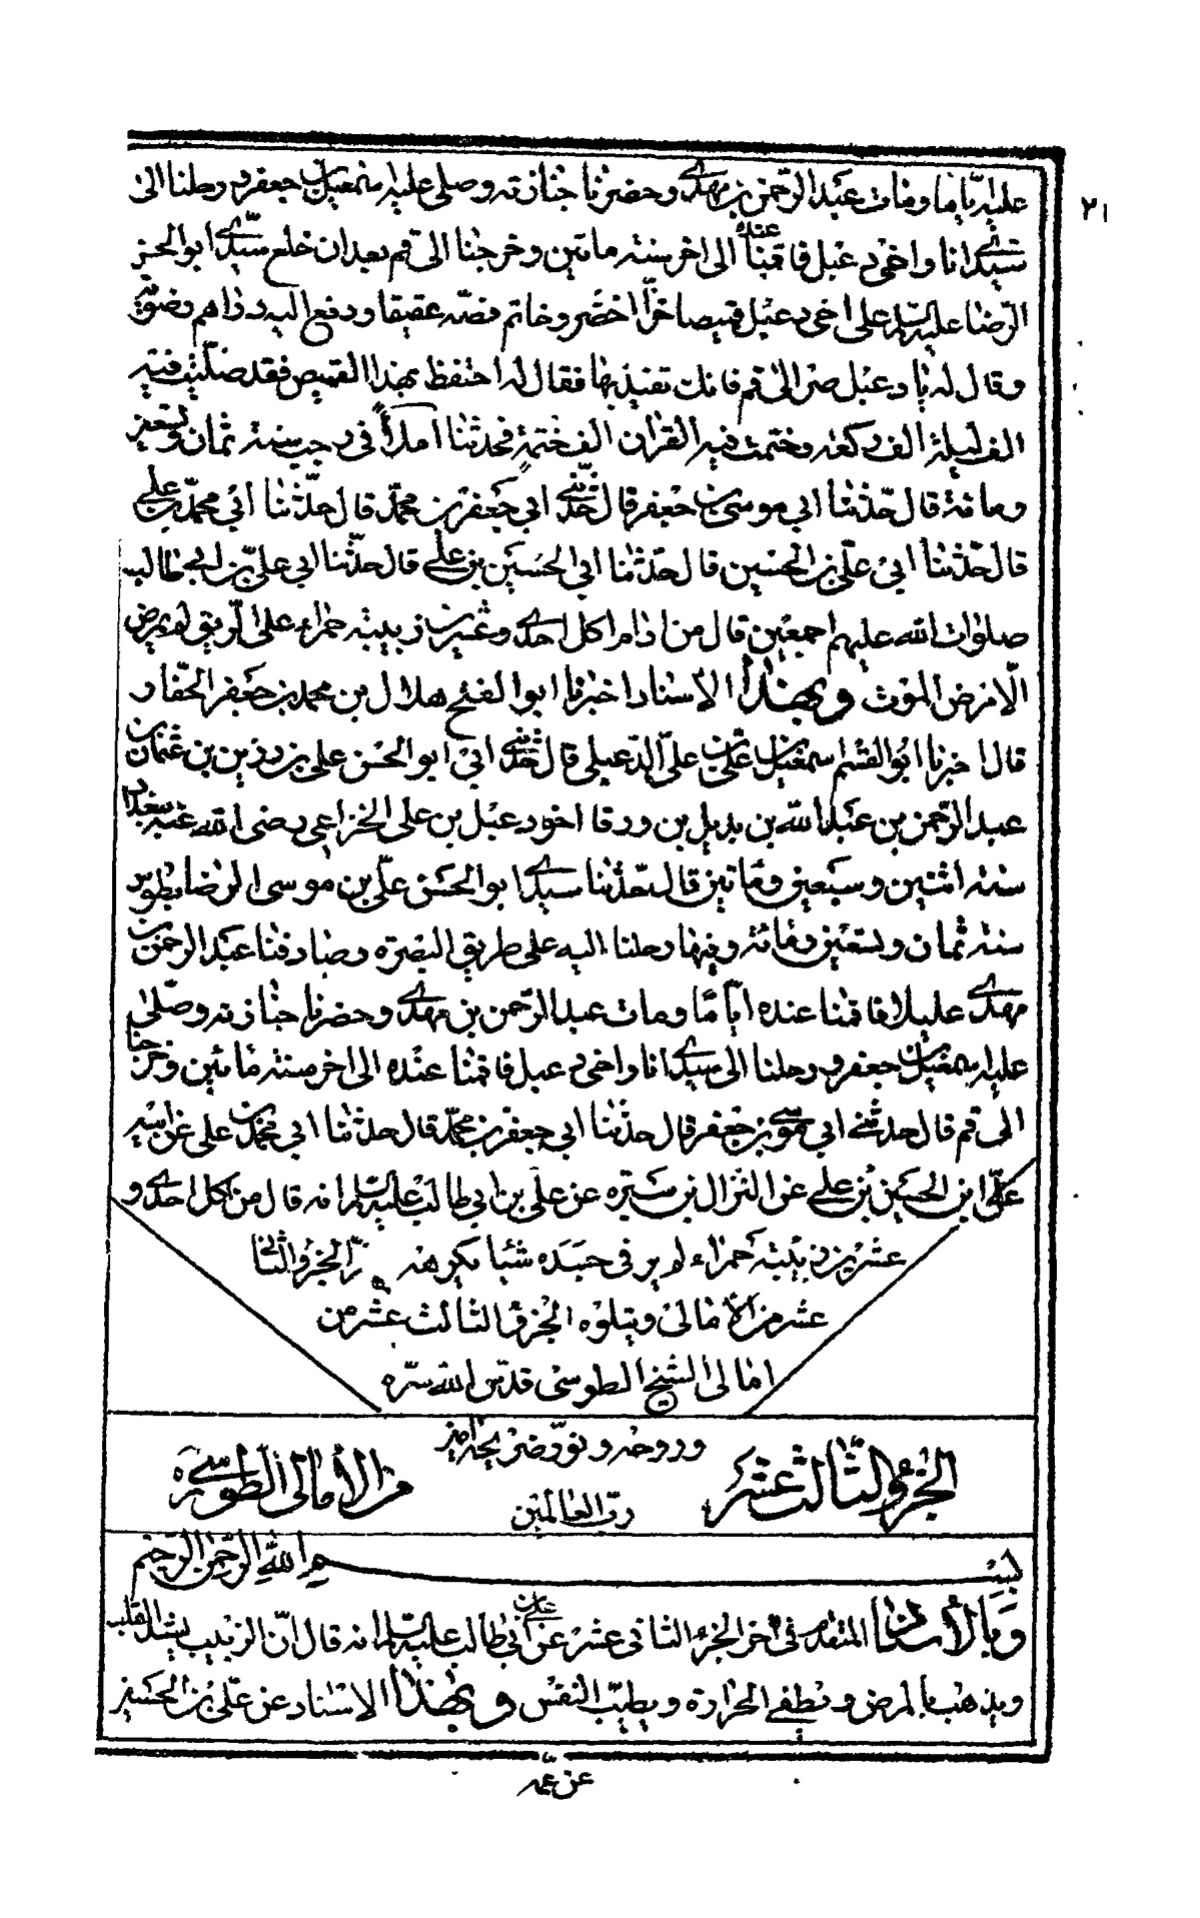 ٢١
علیه ایاما ومات عبد الرحمن بن مهدی وحضرنا جنازته وصلی علیه اسمعیل بن جعفر ورحلنا الی
سیدی انا واخی دعبل فاقمنا عنده الی اخر سنة ماتین وخرجنا الی قم بعد ان خلع سیدی ابو الحسن
الرضا علیه السلم علی اخی دعبل قمیصا خزّا اخضر وخاتم فصّه عقیقا ودفع الیه دراهم رضویّة
وقال له یا دعبل صر الی قم فانك تفید بها فقال له احتفظ بهذا القمیص فقد صلّیت فیه
الف لیلة الف رکعه وختمت فیه القران الف ختمة فحدثنا املاءً فی رجب سنة ثمان وتسعین
ومائة قال حدّثنا ابی موسی بن جعفر قال حدّثنی ابی جعفر بن محمّد قال حدّثنا ابی محمّد بن علی
قال حدّثنا ابی علّی بن الحسین قال حدّثنا ابی الحسین بن علی قال حدّثنا ابی علی بن ابیطالب
صلوات الله علیهم اجمعین قال من ادام اکل احدی وعشرین زبیبة حمراء علی الریق لم یمرض
الّا مرض الموت وبهذا الاسناد اخبرنا ابو الفتح هلال بن محمد بن جعفر الحفّار
قال اخبرنا ابو القسم اسمعیل بن علی بن علی الدعبلی قال حدّثنی ابی ابو الحسن علی بن رزین بن عثمان بن
عبد الرحمن بن عبد الله بن بدیل بن ورقا اخو دعبل بن علی الخزاعی رضی الله عنه ببغداد
سنة اثنین وسبعین وماتین قال حدّثنا سیدی ابو الحسن علّی بن موسی الرضا بطوس
سنة ثمان وتسعین ومائة وفیها رحلنا الیه علی طریق البصرة وصادفنا عبد الرحمن بن
مهدی علیلا فاقمنا عنده ایّاما ومات عبد الرحمن بن مهدی وحضرنا جنازته وصلّی
علیه اسمعیل بن جعفر ورحلنا الی سیدی انا واخی دعبل فاقمنا عنده الی اخر سنة مائتین وخرجنا
الی قم قال حدثنی ابی موسی بن جعفر قال حدثنا ابی جعفر بن محمّد قال حدثنا ابی محمد بن علی عن ابیه
علّی ابن الحسین بن علی عن النزال بن سبرة عن علی بن ابی طالب علیه السلم انه قال من اکل احدی و
عشرین زبیبة حمراء لم یر فی جسده شیئا یکرهه تمّ الجزؤ الثانی
عشر من الأمالی ویتلوه الجزؤ الثالث عشر من
امالی الشیخ الطوسی قدّس الله سرّه
الجزؤ الثالث عشر
وروحه ونوّر ضریحه امین
ربّ العالمین
من الأمالی الطوسی ره
بسم الله الرحمن الرحیم
وبالأسناد المتقدم فی آخر الجزء الثانی عشر عن علی بن ابی طالب علیه السلم انه قال انّ الزبیب یشد القلب
ویذهب بالمرض ویطفی الحرارة ویطیّب النفس وبهذا الاسناد عن علّی بن الحسین
عن عمّه